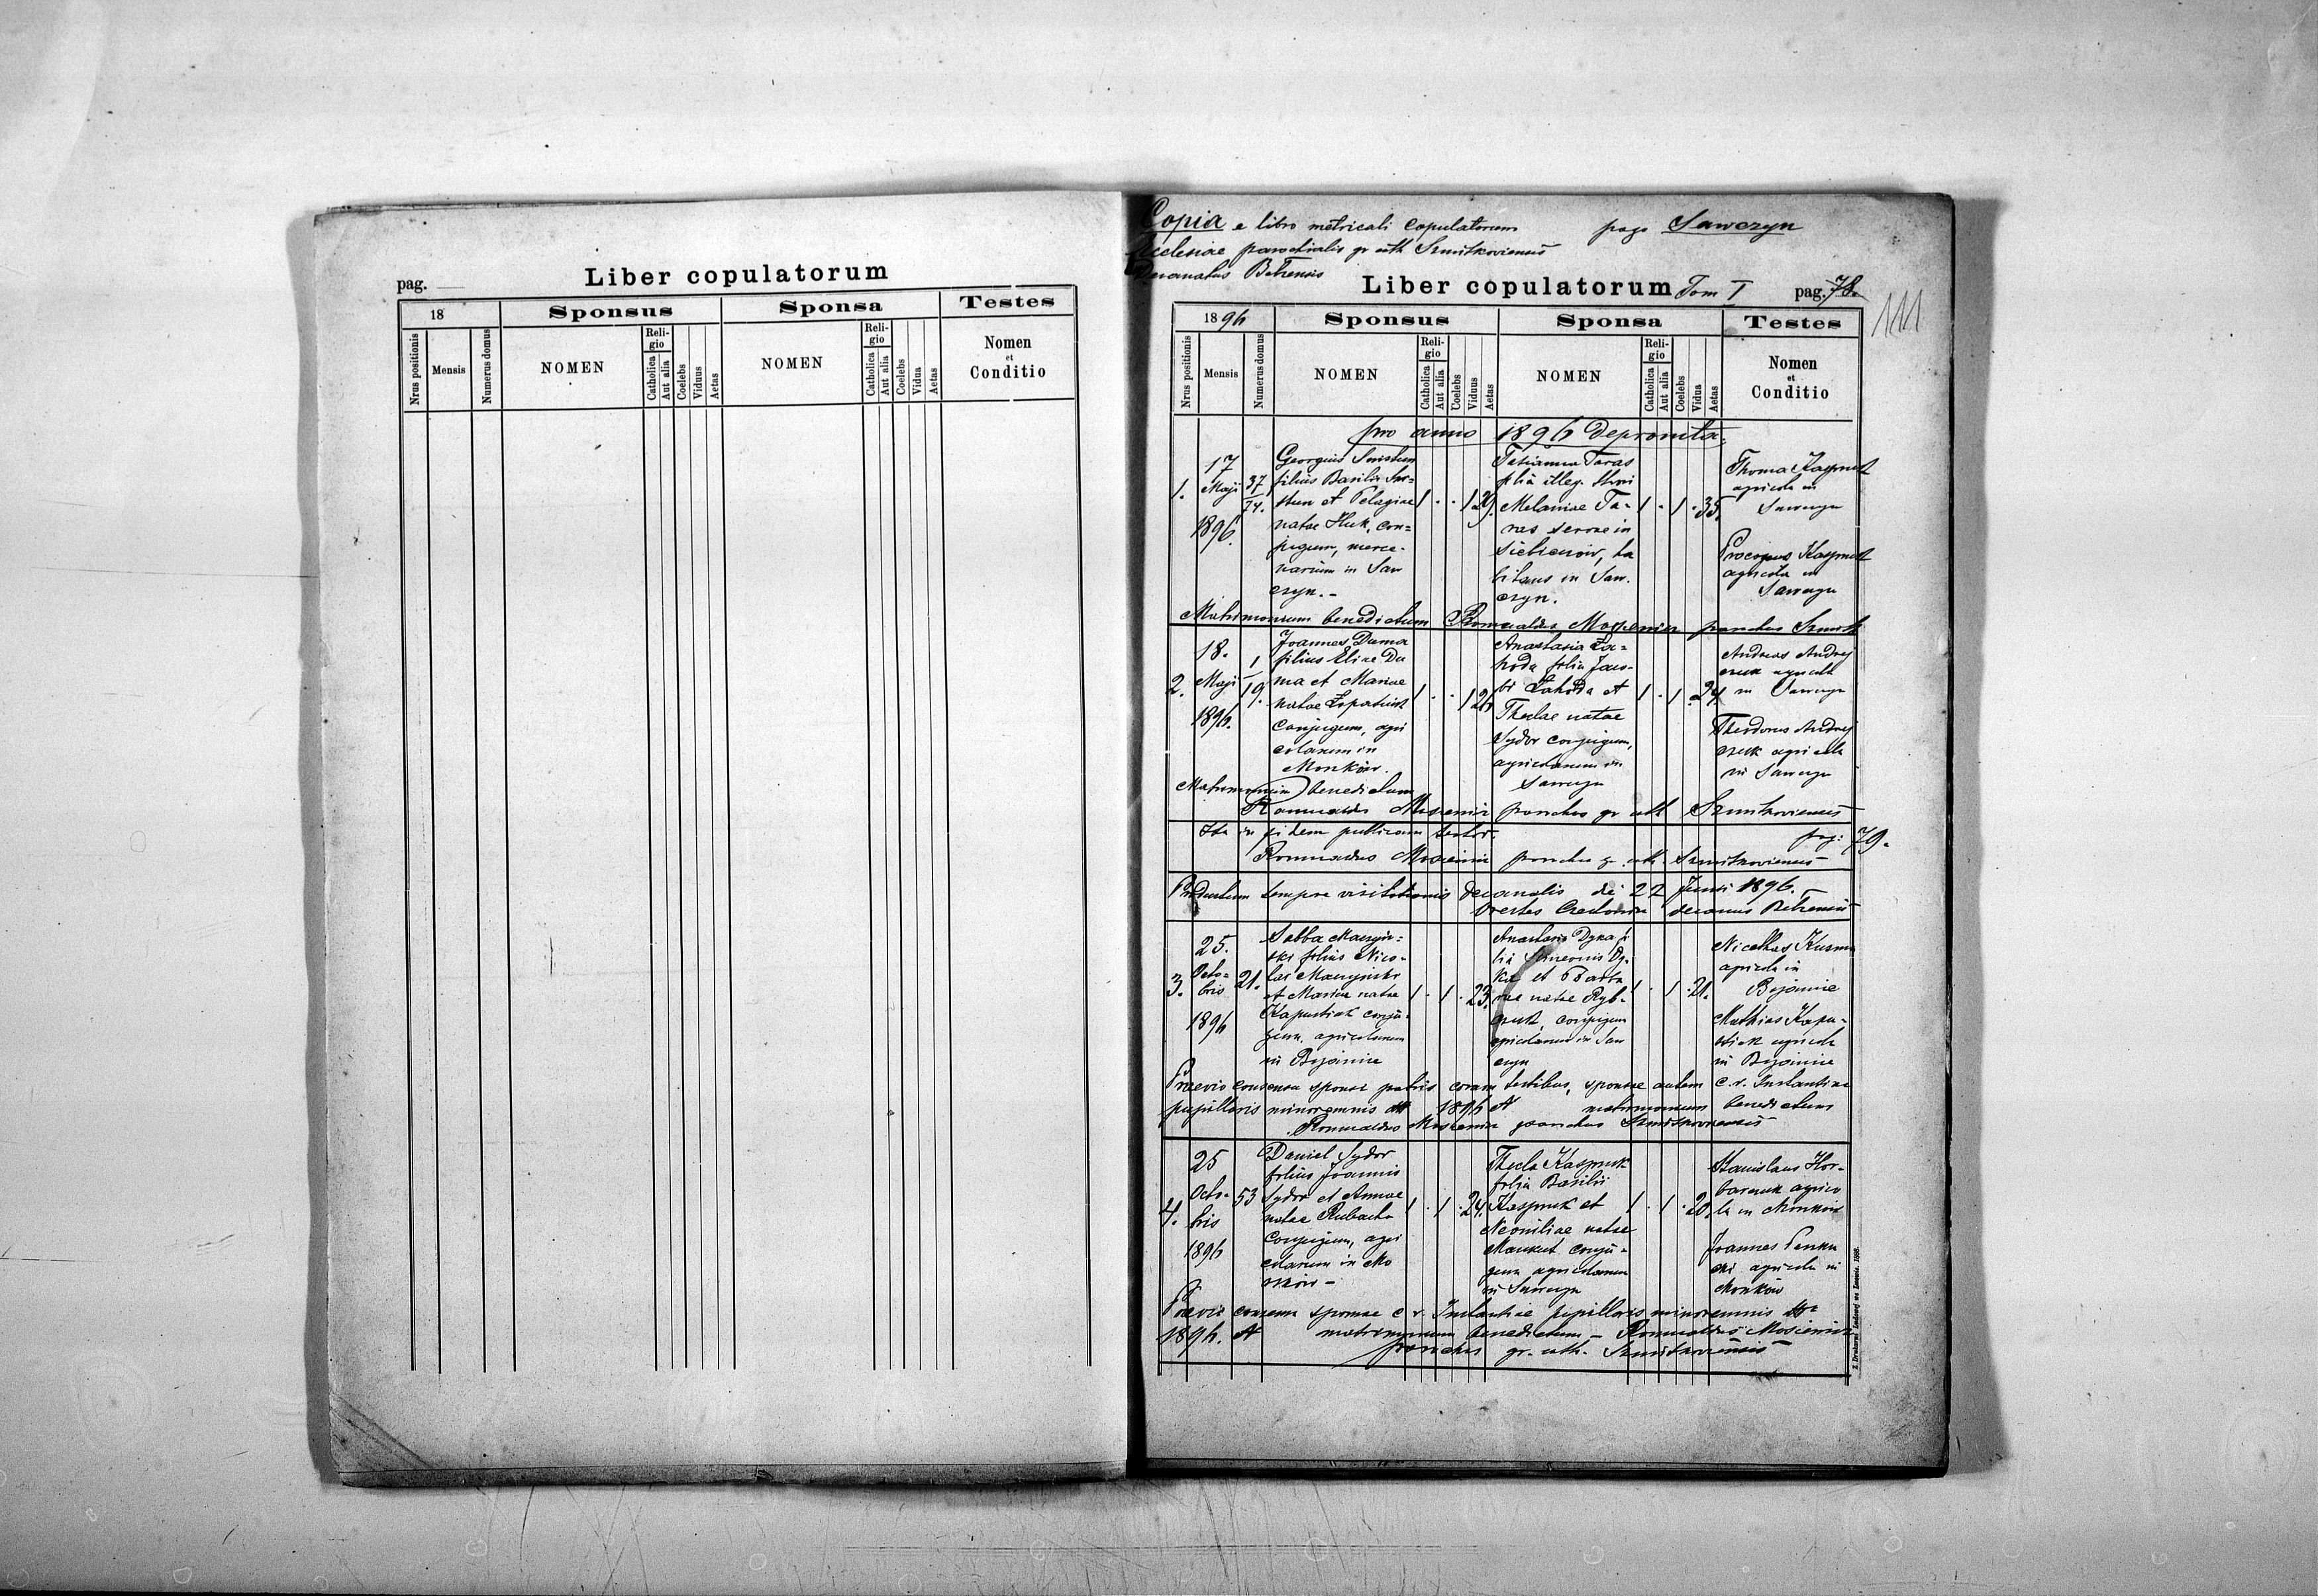 Liber copulatorum
pag.
18
Sponsus
Sponsa
Testes
Nrus positionis
Mensis
Numerus domus
NOMEN
Religio
Catholica
Aut alia
Coelebs
Viduus
Aetas
NOMEN
Religio
Catholica
Aut alia
Coelebs
Vidua
Aetas
Nomen
et
Conditio
Copia e libro metricali Copulatorum pago Sawczyn
Ecclesiae parochialis gr rith Szmitkoviensis
Decanatus Belzensis
Liber copulatorum Tom I pag. 78.
111
1896
Sponsus
Sponsa
Testes
Nrus positionis
Mensis
Numerus domus
NOMEN
Religio
Catholica
Aut alia
Coelebs
Viduus
Aetas
NOMEN
Religio
Catholica
Aut alia
Coelebs
Vidua
Aetas
Nomen
et
Conditio
pro anno 1896 Depromta
1.
17
Maji
1896.
37
74.
Georgius
filius Basilii
et Pelagiae
natae Huk, con=
jugum, merce-
narium in Saw
czyn. -
1 . . 1 29.
Tatianna Taras
filia illeg. thori
Melaniae Ta-
ras servae in
ha
bitans in Saw.
czyn.
1 . 1 . 35.
Thoma Kaspruk
agricola in
Sawczyn
Procopius Kaspruk
agricola in
Sawczyn
Matrimonium benedictum Romualdus parochus
2.
18.
Maji
1896.
1
19.
Joannes Duma
filius Eliae Du
ma et Mariae
natae
Conjugum, agri
colarum in
Monków.
1 . . 1 26
Anastasia Ła=
hoda filia Jaco-
bi Łahoda et
Theclae natae
Sydor conjugum,
agricolarum in
Sawczyn
1 . 1 . 24.
Andreas Andrej
czuk agricola
in Sawczyn
Theodorus Andrej
czuk agricola
in Sawczyn
Matrimonium benedictum
Romualdus parochus gr rith Szmitkoviensis
Ita in fidem publicam testor. pag: 79.
Romualdus parochus gr. rith. Szmitkoviensis
tempore visitationis decanalis die 27 Junii 1896.
Orestes decanus Belzensis
3.
25.
Octo-
bris
1896
21.
Sabba
ski filius Nico-
lai
et Mariae natae
Kapustiak conju-
gum, agricolarum
in Bojanice
1 . 1 . 23.
Anastasia Dyka fi
lia Simeonis Dy-
ka et Barba
rae natae Ryb-
czuk, conjugum
agricolarum in Saw
czyn
1 . 1 . 21.
Nicolaus
agricola in
Bojanice
Mathias Kapu-
stiak agricola
in Bojanice
Praevio consensu sponsi patris coram testibus, sponsae autem c. r. Instantiae
pupillaris minorennis 1896 N matrimonium benedictum
Romualdus parochus Szmitkoviensis
4.
25
Octo-
bris
1896
53
Daniel Sydor
filius Joannis
Sydor et Annae
natae Rubacha
Conjugum, agri
colarum in Mo
nków -
1 . 1 . 24.
Thecla Kaspruk
filia Basilii
Kaspruk et
Neoniliae natae
conju-
gum agricolarum
in Sawczyn
1 . 1 . 20.
Stanislaus Hor-
agrico
la in Monków
Joannes
ski agricola in
Monków
Praevio consensu sponsae c. r. Instantiae pupillaris minorennis
1896. N matrimonium benedictum - Romualdus
parochus gr. rith. Szmitkoviensis